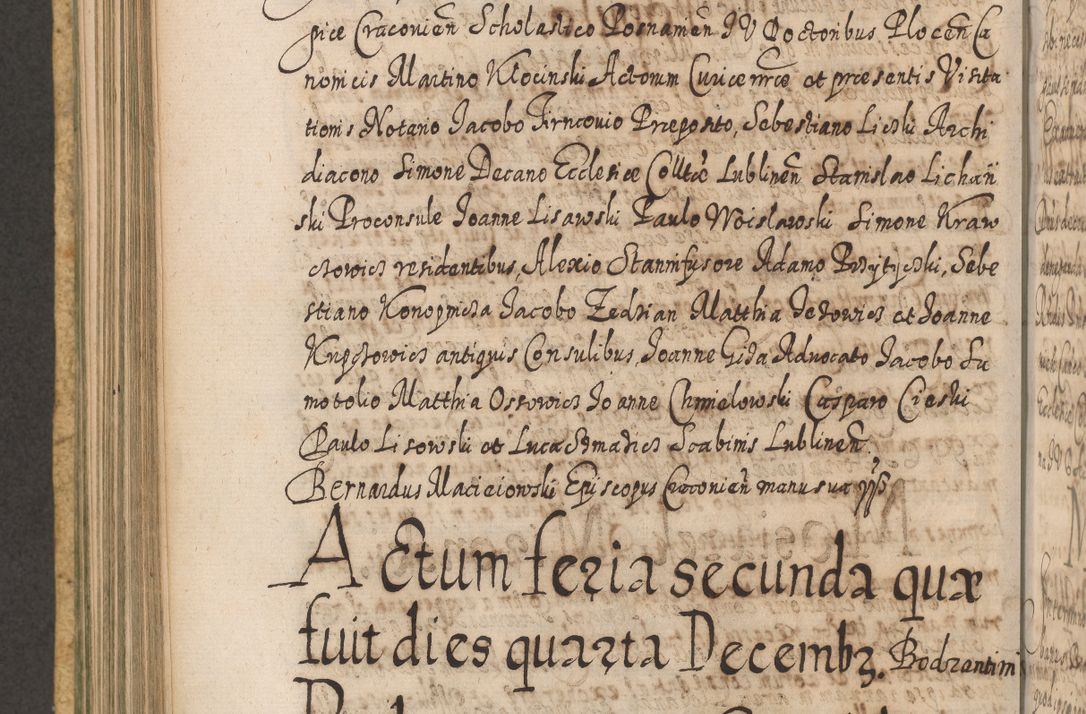 pice Cracovien̄ Scholastico Posnamen̄ IV Doctoribus Plocen̄ Ca
nonicis Martino Kłocinski Actorum Curiæ nræ et præsentis Visita
tionis Notario Jacobo Firncovio Preposito, Sebestiano Liczki Archi
diacono Simone Decano Ecclesiæ Colltæ Lublinen̄ Stanislao Lichan̄
ski Proconsule Joanne Lisawski Paulo Woislawski Simone Kraw
czowicz residentibus, Alexio Stannifusore Adamo Przytyczki, Sebe
stiano Konopnicza Jacobo Zedzian Matthia Jezowicz et Joanne
Knpczowicz antiquis Consulibus, Joanne Giza Advocato Jacobo Su
motolio Matthia Ossowicz Joanne Chmielowski Casparo Cieski
Paulo Lisowski et Luca Szmadicz Scabinis Lublinen̄.
Bernardus Macieiowski Episcopus Cracovien̄ manu sua pp̄
Actum feria secunda quæ
fuit dies quarta Decembr. Bodzantini